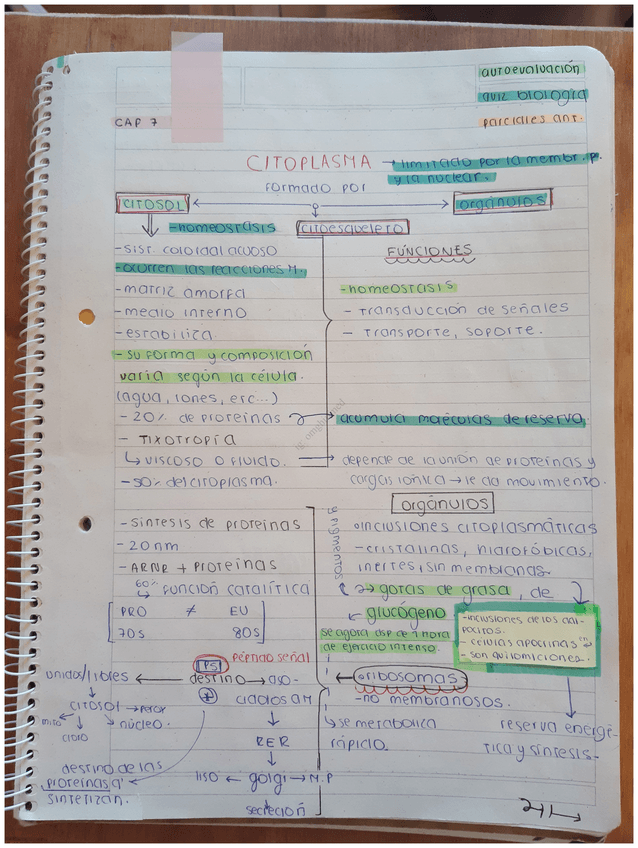 autoevaluación
quiz biología
parciales ant.
CAP 7
CITOPLASMA → limitado por la membr. P.
y la nuclear.
formado por
CITOSOL
orgánulos
citoesqueleto
-homeostasis
-sist. coloidal acuoso
-ocurren las reacciones M.
-matriz amorfa
-medio interno
-estabiliza.
-su forma y composición
varia según la célula.
(agua, iones, etc...)
-20% de proteinas
- TIXOTROPIA
↳ VISCOSO O FLUIDO.
-50% del citoplasma.
FUNCIONES
-homeostasis
- Transducción de señales
- Transporte, soporte.
→ acumula moléculas de reserva
→ depende de la unión de proteinas y
cargas iónica → le da movimiento.
orgánulos
inclusiones citoplasmáticas
-cristalinas, hidrofóbicas,
inertes, sin membranas.
y pigmentos
gotas de grasa, de
glucógeno
se agota dsp de 1 hora
de ejercicio intenso.
-inclusiones de los adi-
pocitos.
- células apocrinas en
- son quilomicrones.
reserva energé-
tica y síntesis.
-síntesis de proteinas
-20nm
-ARNR + proteinas
60%
↳ función catalítica
PRO ≠ EU
70S 80S
ribosomas
-no membranosos.
↳ se metaboliza
rápido.
péptido señal
PS
unidos/libres ← destino → aso-
ciados a M
CITOSOL → perox
mito
núcleo.
RER
liso ← golgi → M.P
secreción
destino de las
proteinas q'
sintetizan.